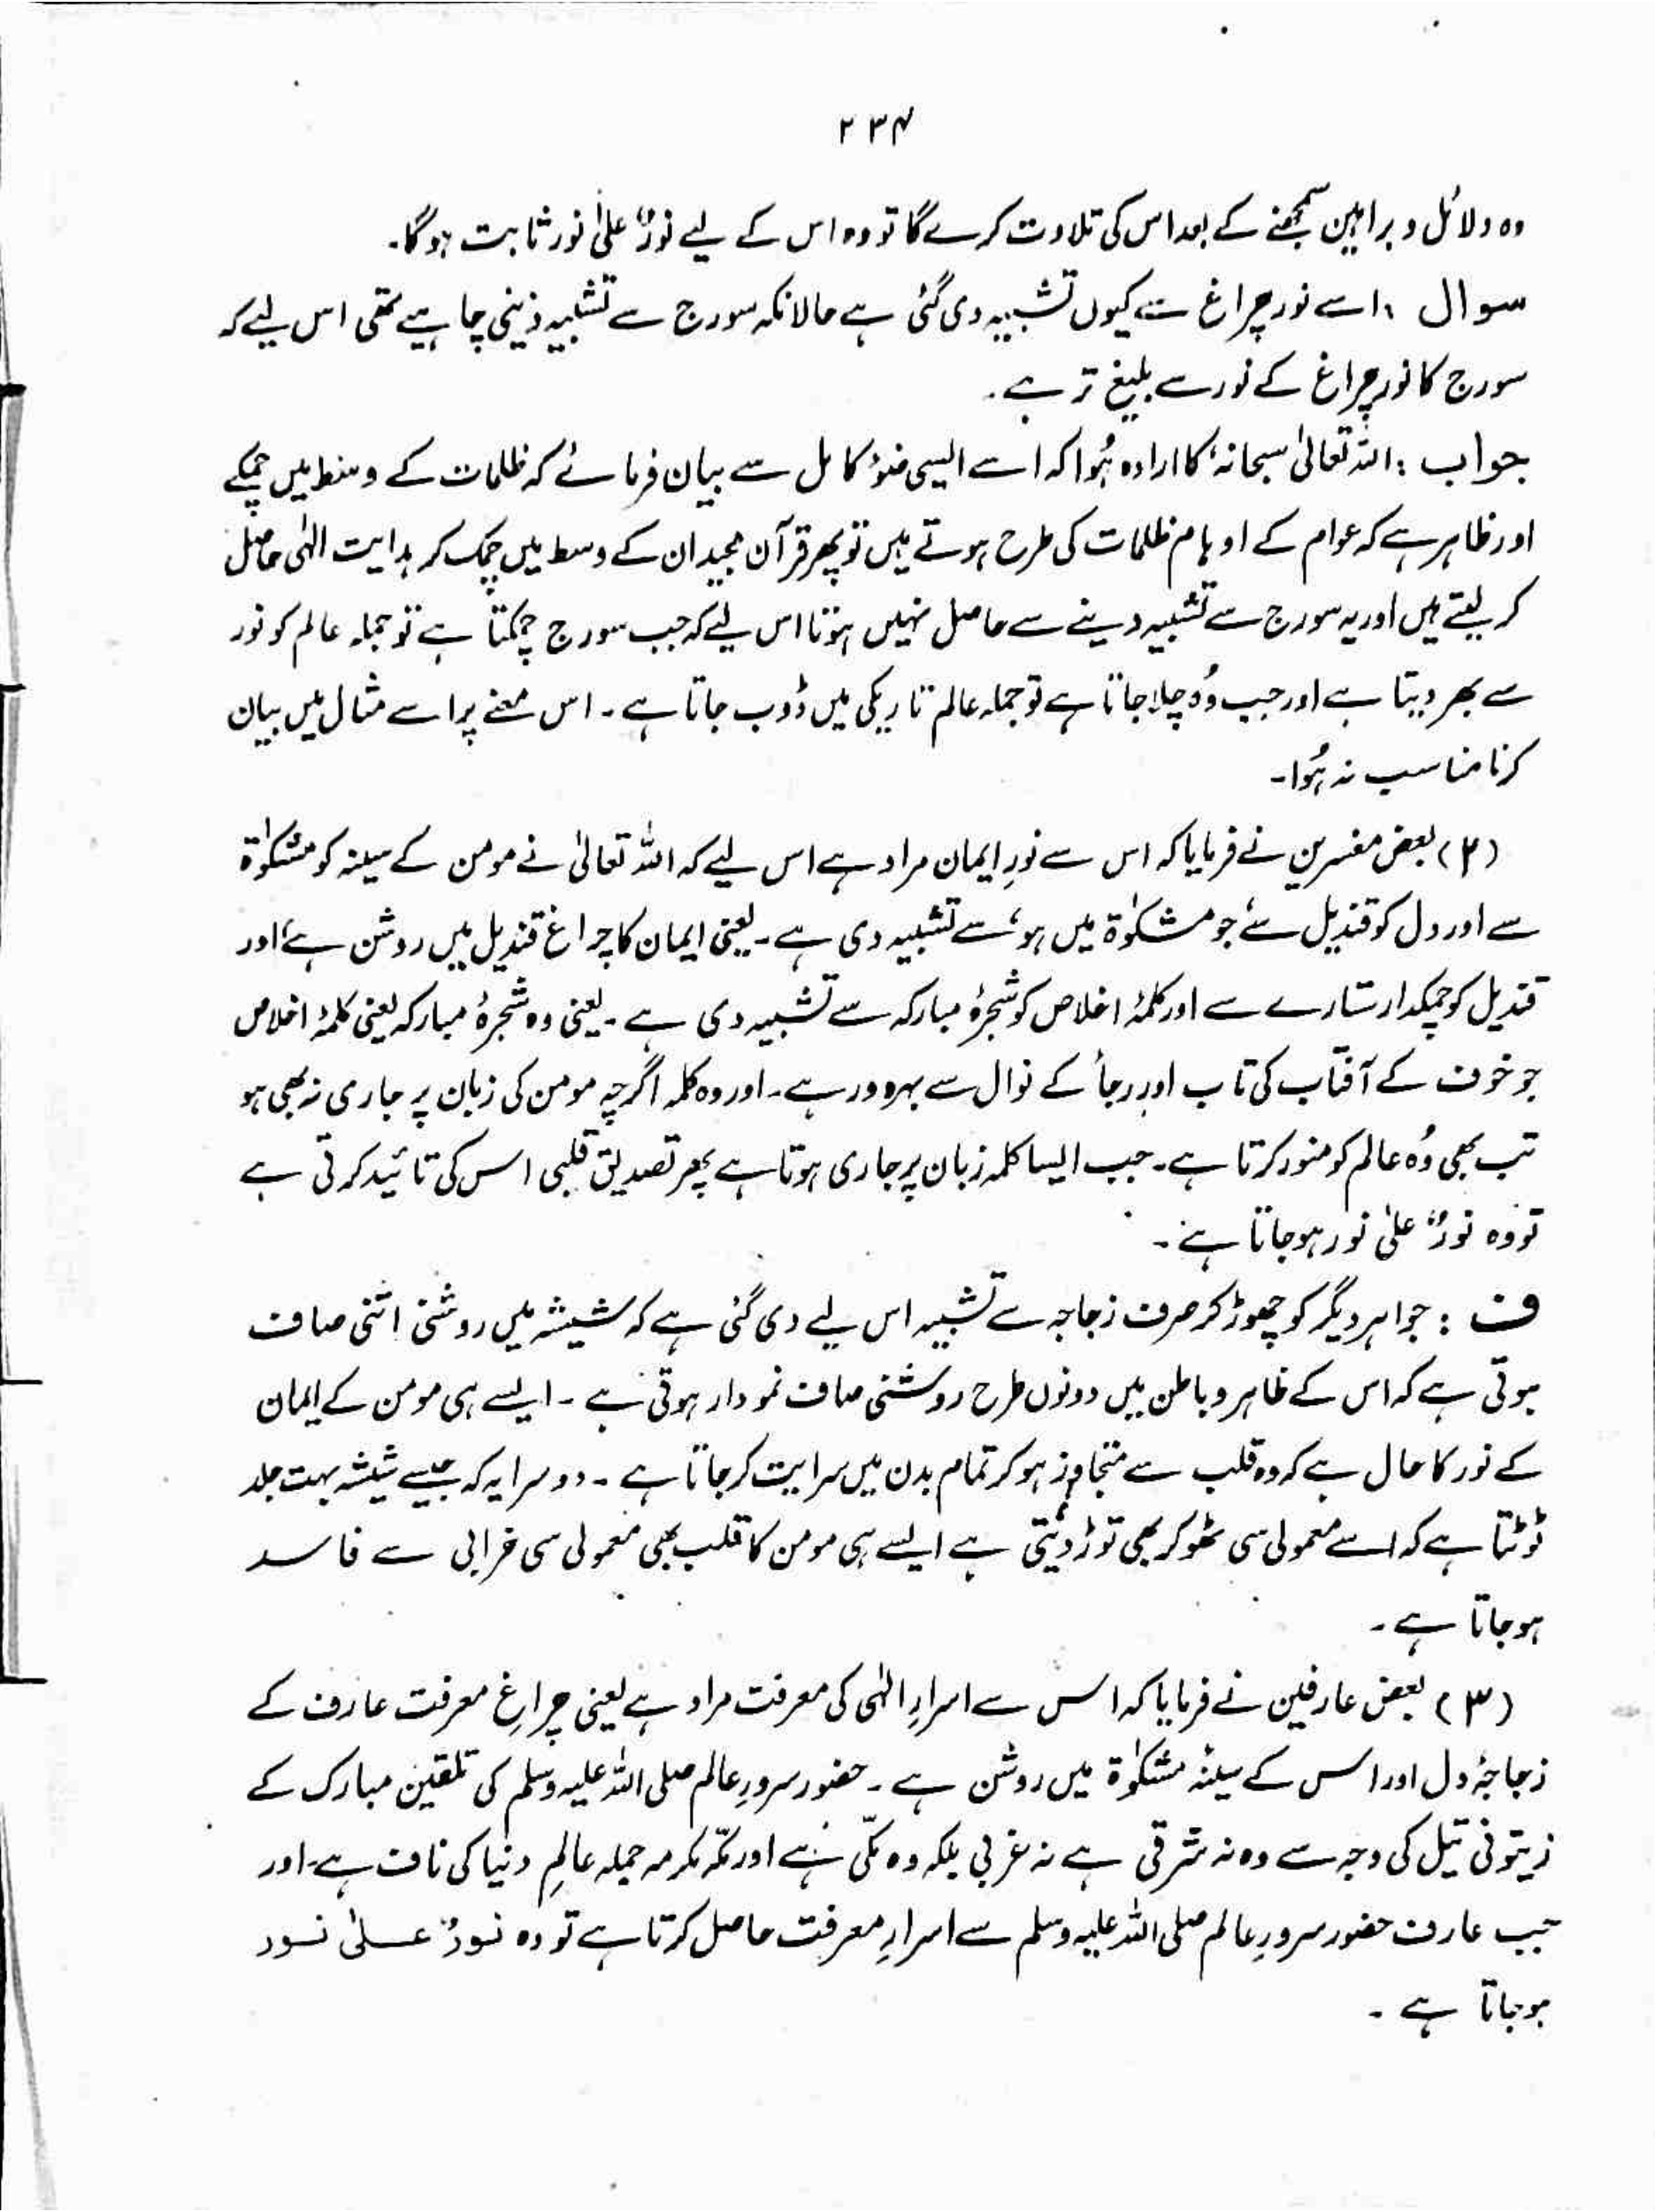 ۲۳۴
وہ دلائل و براہین سمجھنے کے بعد اس کی تلاوت کرے گا تو وہ اس کے لیے نورٌ علیٰ نور ثابت ہوگا۔
سوال : اسے نور چراغ سے کیوں تشبیہ دی گئی ہے حالانکہ سورج سے تشبیہ دینی چاہیے تھی اس لیے کہ
سورج کا نور چراغ کے نور سے بلیغ تر ہے۔
جواب : اللہ تعالیٰ سبحانہٗ کا ارادہ ہُوا کہ اسے ایسی ضوءِ کامل سے بیان فرمائے کہ ظلمات کے وسط میں چمکے
اور ظاہر ہے کہ عوام کے اوہام ظلمات کی طرح ہوتے ہیں تو پھر قرآن مجید ان کے وسط میں چمک کر ہدایت الٰہی حاصل
کر لیتے ہیں اور یہ سورج سے تشبیہ دینے سے حاصل نہیں ہوتا اس لیے کہ جب سورج چمکتا ہے تو جملہ عالم کو نور
سے بھر دیتا ہے اور جب وُہ چلا جاتا ہے تو جملہ عالم تاریکی میں ڈوب جاتا ہے۔ اس معنے پر اسے مثال میں بیان
کرنا مناسب نہ ہُوا۔
(۲) بعض مفسرین نے فرمایا کہ اس سے نورِ ایمان مراد ہے اس لیے کہ اللہ تعالیٰ نے مومن کے سینہ کو مشکوٰۃ
سے اور دل کو قندیل سے، جو مشکوٰۃ میں ہو، سے تشبیہ دی ہے۔ یعنی ایمان کا چراغ قندیل میں روشن ہے، اور
قندیل کو چمکدار ستارے سے اور کلمۂ اخلاص کو شجرۂ مبارکہ سے تشبیہ دی ہے۔ یعنی وہ شجرۂ مبارکہ یعنی کلمۂ اخلاص
جو خوف کے آفتاب کی تاب اور رجأ کے نوال سے بہرہ ور ہے۔ اور وہ کلمہ اگرچہ مومن کی زبان پر جاری نہ بھی ہو
تب بھی وُہ عالم کو منور کرتا ہے۔ جب ایسا کلمہ زبان پر جاری ہوتا ہے پھر تصدیق قلبی اس کی تائید کرتی ہے
تو وہ نورٌ علیٰ نور ہو جاتا ہے۔
ف : جواہر دیگر کو چھوڑ کر صرف زجاجہ سے تشبیہ اس لیے دی گئی ہے کہ شیشہ میں روشنی اتنی صاف
ہوتی ہے کہ اس کے ظاہر و باطن میں دونوں طرح روشنی صاف نمودار ہوتی ہے۔ ایسے ہی مومن کے ایمان
کے نور کا حال ہے کہ وہ قلب سے متجاوز ہو کر تمام بدن میں سرایت کر جاتا ہے۔ دوسرا یہ کہ جیسے شیشہ بہت جلد
ٹوٹتا ہے کہ اسے معمولی سی ٹھوکر بھی توڑ دیتی ہے ایسے ہی مومن کا قلب بھی معمولی سی خرابی سے فاسد
ہو جاتا ہے۔
(۳) بعض عارفین نے فرمایا کہ اس سے اسرارِ الٰہی کی معرفت مراد ہے یعنی چراغِ معرفت عارف کے
زجاجۂ دل اور اس کے سینۂ مشکوٰۃ میں روشن ہے۔ حضور سرورِ عالم صلی اللہ علیہ وسلم کی تلقین مبارک کے
زیتونی تیل کی وجہ سے وہ نہ شرقی ہے نہ غربی بلکہ وہ مکّی ہے اور مکّہ مکرمہ جملہ عالمِ دنیا کی ناف ہے، اور
جب عارف حضور سرورِ عالم صلی اللہ علیہ وسلم سے اسرارِ معرفت حاصل کرتا ہے تو وہ نورٌ علیٰ نور
ہو جاتا ہے۔